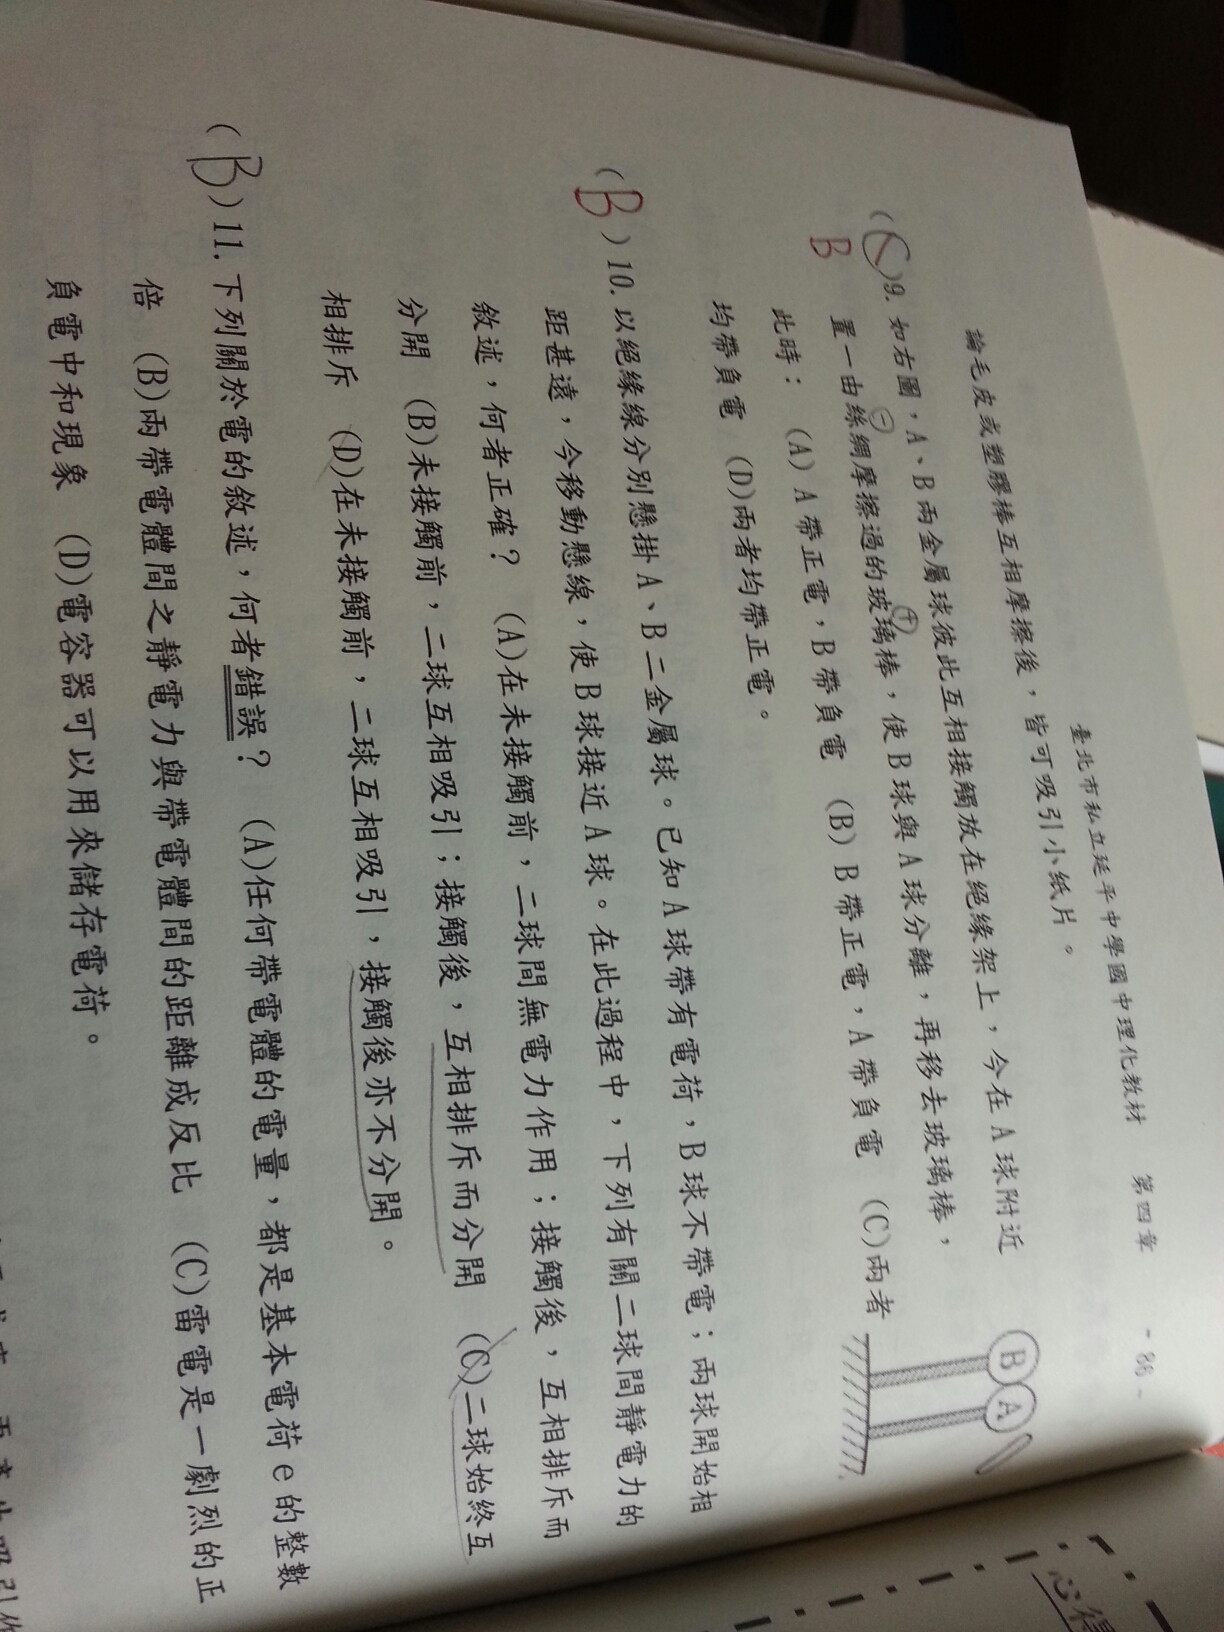 臺北市私立延平中學國中理化教材 第四章 - 86 -
論毛皮或塑膠棒互相摩擦後，皆可吸引小紙片。
(C)9. 如右圖，A、B兩金屬球彼此互相接觸放在絕緣架上，今在A球附近
B
置一由絲綢摩擦過的玻璃棒，使B球與A球分離，再移去玻璃棒，
⊖ ⊕
此時： (A) A 帶正電，B帶負電 (B) B 帶正電，A 帶負電 (C)兩者
均帶負電 (D)兩者均帶正電。
B A
(B)10. 以絕緣線分別懸掛A、B二金屬球。已知A球帶有電荷，B球不帶電；兩球開始相
距甚遠，今移動懸線，使B球接近A球。在此過程中，下列有關二球間靜電力的
敘述，何者正確？ (A)在未接觸前，二球間無電力作用；接觸後，互相排斥而
分開 (B)未接觸前，二球互相吸引；接觸後，互相排斥而分開 (C)二球始終互
相排斥 (D)在未接觸前，二球互相吸引，接觸後亦不分開。
(B)11. 下列關於電的敘述，何者錯誤？ (A)任何帶電體的電量，都是基本電荷e的整數
倍 (B)兩帶電體間之靜電力與帶電體間的距離成反比 (C)雷電是一劇烈的正
負電中和現象 (D)電容器可以用來儲存電荷。
心得